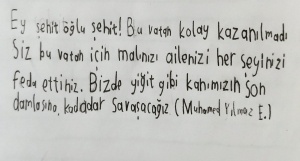 Ey şehit oğlu şehit! Bu vatan kolay kazanılmadı
Siz bu vatan için malınızı ailenizi her şeyinizi
feda ettiniz. Bizde yiğit gibi kanımızın son
damlasına, kadadar savaşacağız (Muhamed Yılmaz E.)